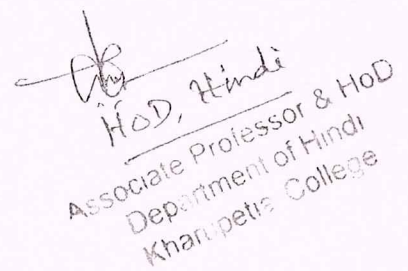 HOD, Hindi
Associate Professor & HoD
Department of Hindi
Kharupetia College